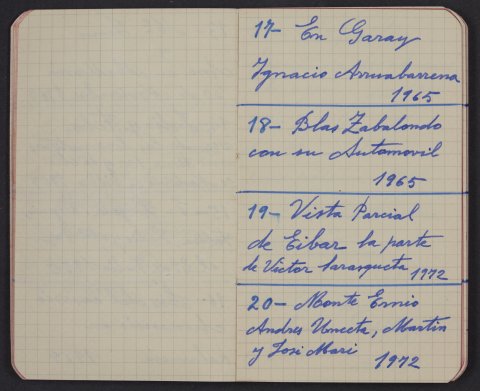 17- En Garay
Ignacio Arruabarrena
1965
18- Blas Zabalondo
con su Automovil
1965
19- Vista Parcial
de Eibar la parte
de Victor Sarasqueta 1972
20- Monte Ernio
Andres Unceta, Martin
y Josi Mari
1972